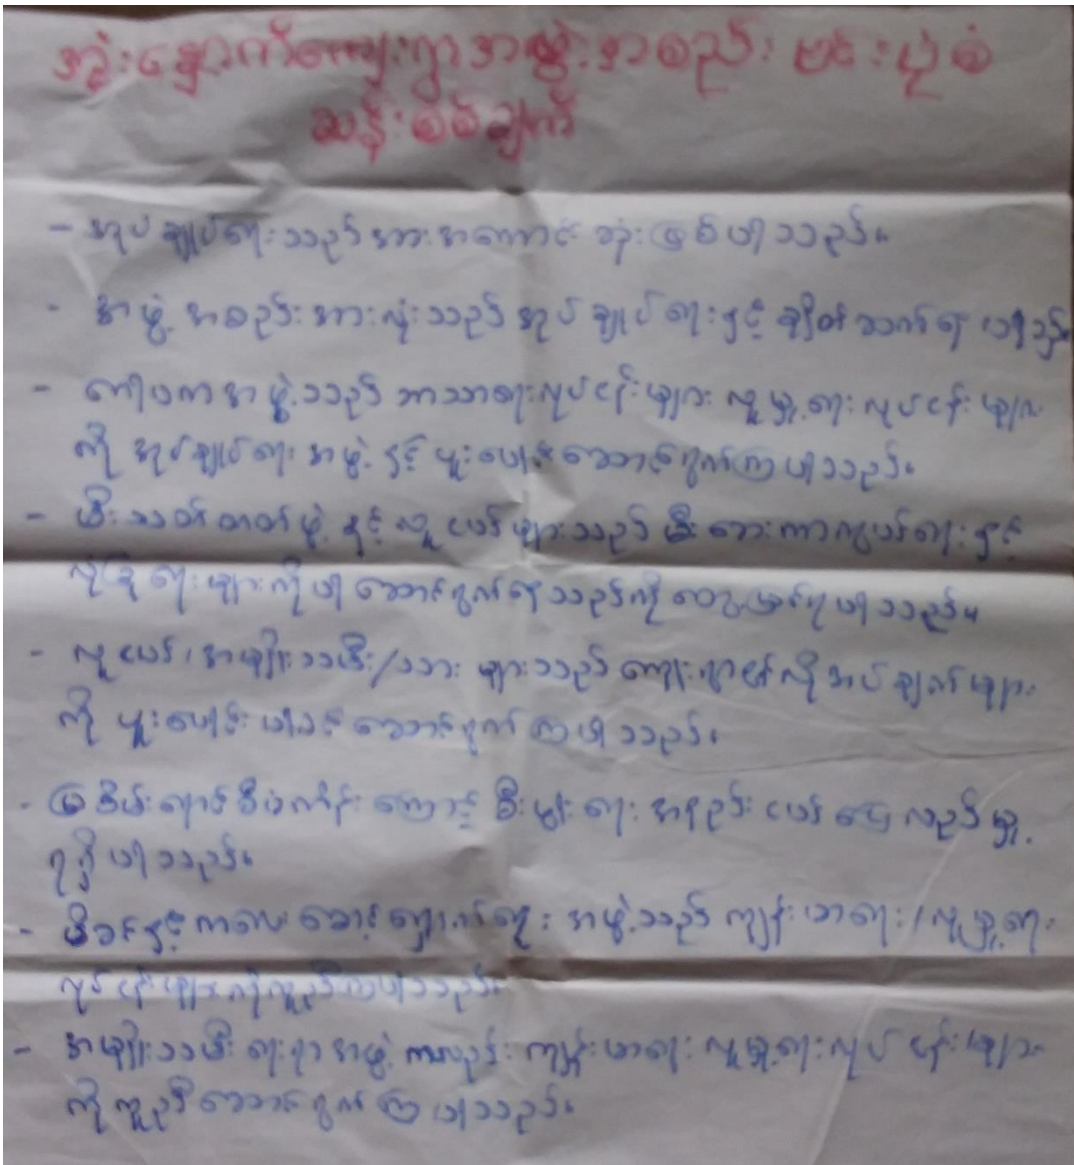 အုံးချောက်ကျေးရွာအဖွဲ့အစည်း ဗင်းပုံစံ
ဆန်းစစ်ချက်
- အုပ်ချုပ်ရေးသည် အားအကောင်းဆုံးဖြစ်ပါသည်။
- အဖွဲ့အစည်းအားလုံးသည် အုပ်ချုပ်ရေးနှင့် ချိတ်ဆက်နေပါသည်။
- ဂေါပကအဖွဲ့သည် ဘာသာရေးလုပ်ငန်းများ လူမှုရေးလုပ်ငန်းများ
ကို အုပ်ချုပ်ရေးအဖွဲ့နှင့် ပူးပေါင်းဆောင်ရွက်ကြပါသည်။
- မီးသတ်တပ်ဖွဲ့နှင့် လူငယ်များသည် မီးဘေးကာကွယ်ရေးနှင့်
လုံခြုံရေးများကိုပါ ဆောင်ရွက်နေသည်ကို တွေ့မြင်ရပါသည်။
- လူငယ်၊ အမျိုးသမီး/သားများသည် ကျေးရွာ၏လိုအပ်ချက်များ
ကို ပူးပေါင်းပါဝင်ဆောင်ရွက်ကြပါသည်။
- မြစိမ်းရောင်စီမံကိန်းကြောင့် စီးပွားရေး အနည်းငယ်ပြေလည်မှု
ရရှိပါသည်။
- မိခင်နှင့်ကလေးစောင့်ရှောက်ရေးအဖွဲ့သည် ကျန်းမာရေး/လူမှုရေး
လုပ်ငန်းများကိုကူညီကြပါသည်။
- အမျိုးသမီးရေးရာအဖွဲ့ကလည်း ကျန်းမာရေး လူမှုရေးလုပ်ငန်းများ
ကိုကူညီဆောင်ရွက်ကြပါသည်။